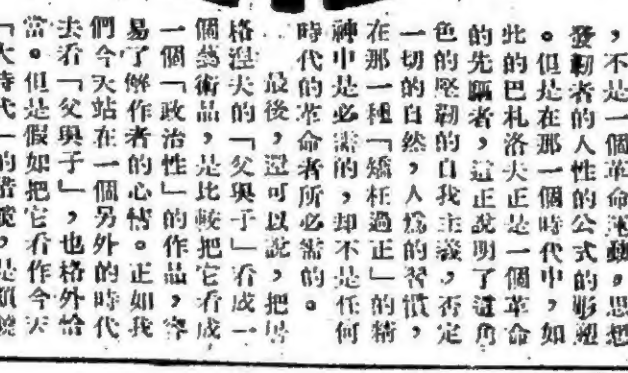 ，不是一個革命運動，思想
發動者的人性的公式的形塑
。但是在那一個時代中，如
此的巴札洛夫正是一個革命
的先驅者，這正說明了這角
色的堅韌的自我主義，否定
一切的自然，人為的習慣，
在那一種「矯枉過正」的精
神中是必需的，却不是任何
時代的革命者所必需的。
最後，還可以說，把屠
格涅夫的「父與子」看成一
個藝術品，是比較把它看成
一個「政治性」的作品，容
易了解作者的心情。正如我
們今天站在一個另外的時代
去看「父與子」，也格外恰
當。但是假如把它看作今天
「大時代」的